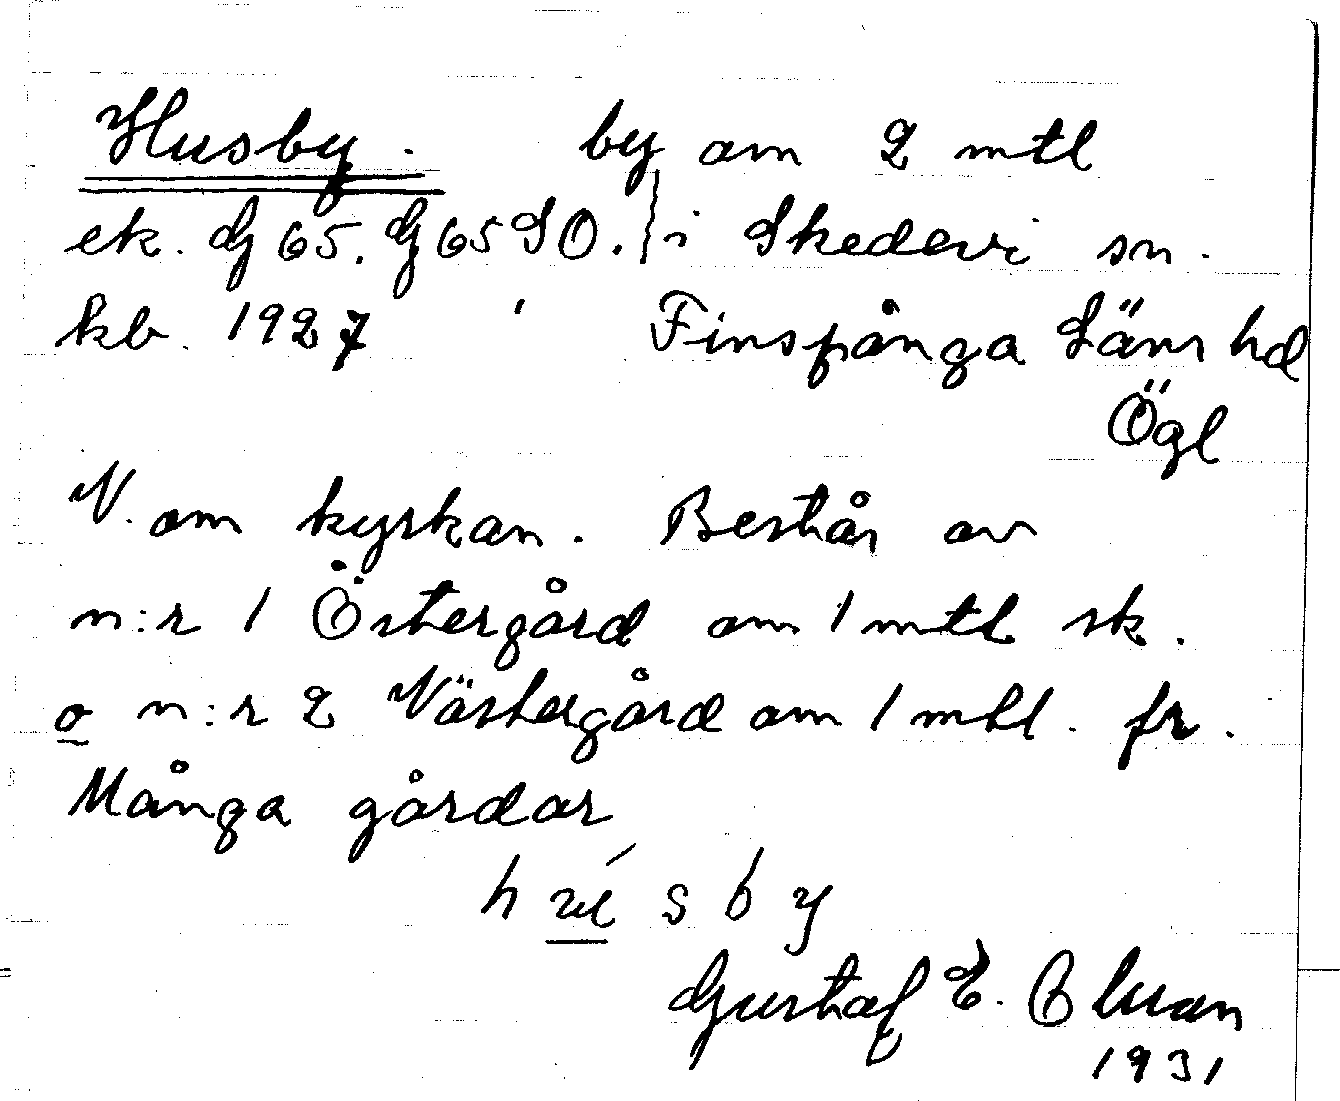 Husby. by om 2 mtl
ek. G 65. G 65 SO. i Skedevi sn.
kb. 1927 Finspånga Läns hd
Ögl
N. om kyrkan. Består av
n:r 1 Östergård om 1 mtl sk.
o n:r 2 Västergård om 1 mtl. fr.
Många gårdar
h s b y
Gustaf E.
1931